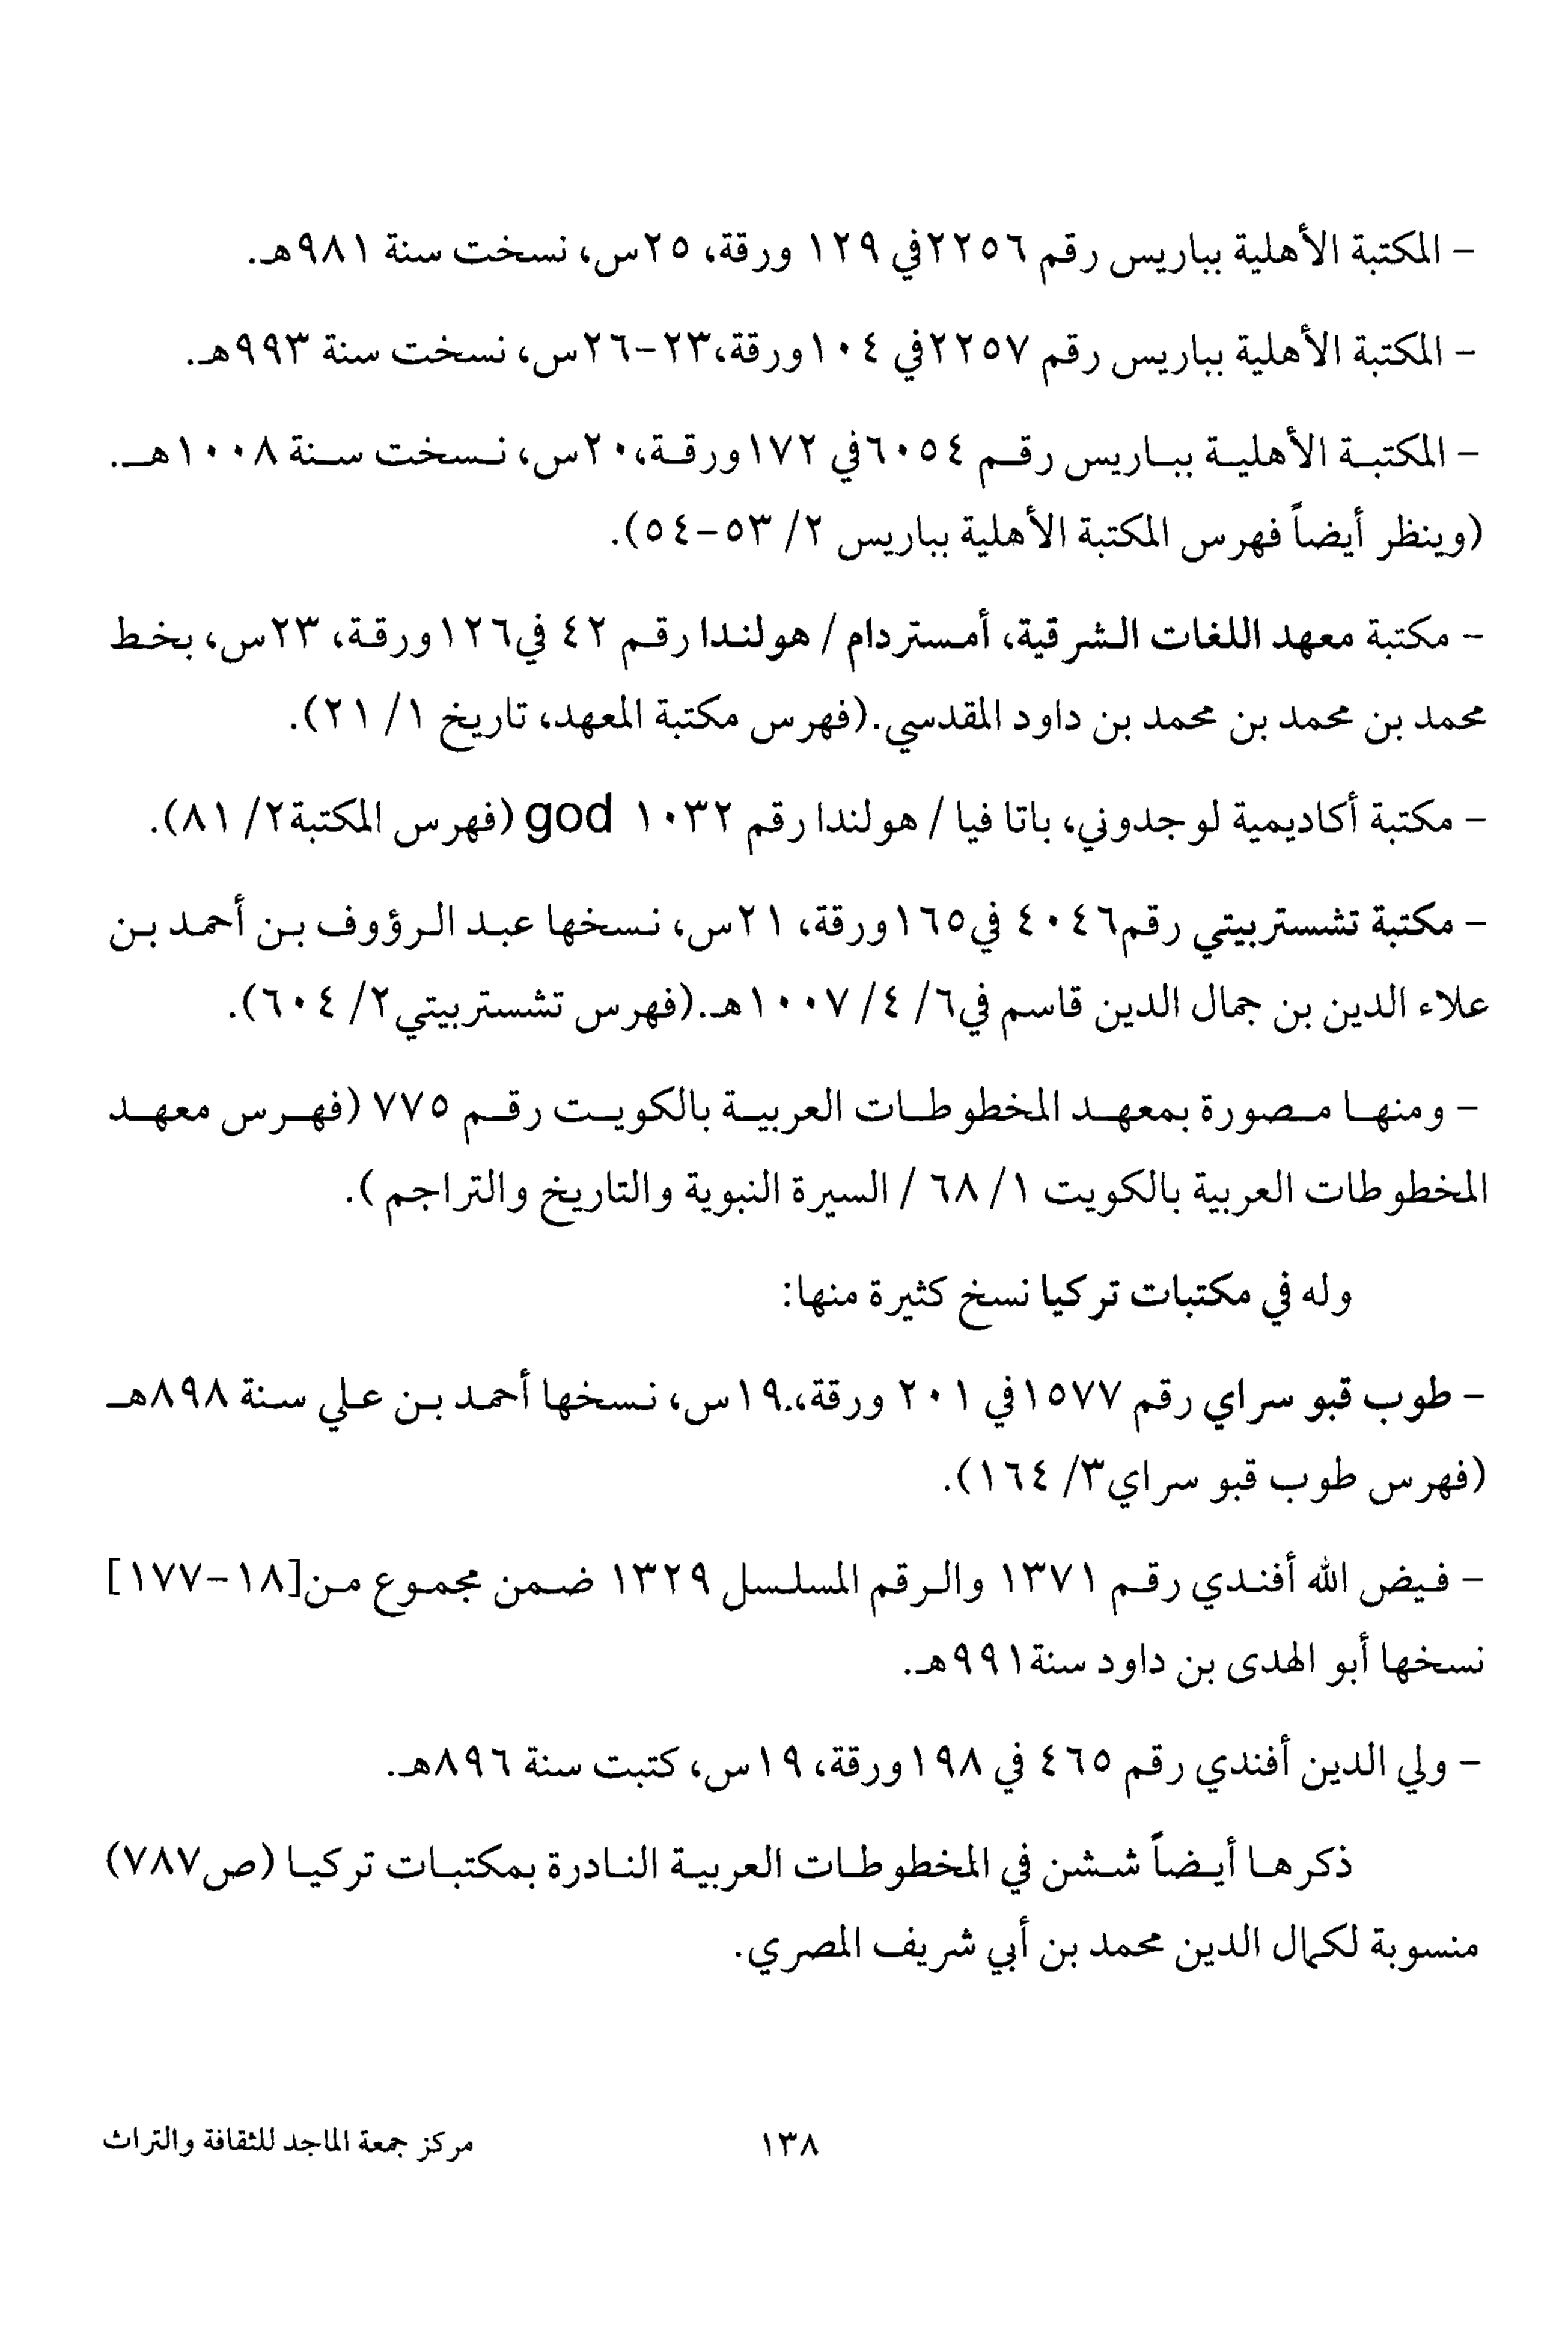 - المكتبة الأهلية بباريس رقم ٢٢٥٦في ١٢٩ ورقة، ٢٥س، نسخت سنة ٩٨١هـ.
- المكتبة الأهلية بباريس رقم ٢٢٥٧في ١٠٤ورقة،٢٣-٢٦س، نسخت سنة ٩٩٣هـ.
- المكتبة الأهلية بباريس رقم ٦٠٥٤في ١٧٢ورقة،٢٠س، نسخت سنة ١٠٠٨هـ.
(وينظر أيضاً فهرس المكتبة الأهلية بباريس ٢/ ٥٣-٥٤).
- مكتبة معهد اللغات الشرقية، أمستردام / هولندا رقم ٤٢ في١٢٦ورقة، ٢٣س، بخط
محمد بن محمد بن محمد بن داود المقدسي.(فهرس مكتبة المعهد، تاريخ ١/ ٢١).
- مكتبة أكاديمية لوجدوني، باتا فيا / هولندا رقم ١٠٣٢ god (فهرس المكتبة٢/ ٨١).
- مكتبة تشستربيتي رقم٤٠٤٦ في١٦٥ورقة، ٢١س، نسخها عبد الرؤوف بن أحمد بن
علاء الدين بن جمال الدين قاسم في٦/ ٤/ ١٠٠٧هـ.(فهرس تشستربيتي٢/ ٦٠٤).
- ومنها مصورة بمعهد المخطوطات العربية بالكويت رقم ٧٧٥ (فهرس معهد
المخطوطات العربية بالكويت ١/ ٦٨ / السيرة النبوية والتاريخ والتراجم ).
وله في مكتبات تركيا نسخ كثيرة منها:
- طوب قبو سراي رقم ١٥٧٧في ٢٠١ ورقة،.١٩س، نسخها أحمد بن علي سنة ٨٩٨هـ
(فهرس طوب قبو سراي٣/ ١٦٤).
- فيض الله أفندي رقم ١٣٧١ والرقم المسلسل ١٣٢٩ ضمن مجموع من[١٨-١٧٧]
نسخها أبو الهدى بن داود سنة٩٩١هـ.
- ولي الدين أفندي رقم ٤٦٥ في ١٩٨ورقة، ١٩س، كتبت سنة ٨٩٦هـ.
ذكرها أيضاً ششن في المخطوطات العربية النادرة بمكتبات تركيا (ص٧٨٧)
منسوبة لكمال الدين محمد بن أبي شريف المصري.
١٣٨
مركز جمعة الماجد للثقافة والتراث